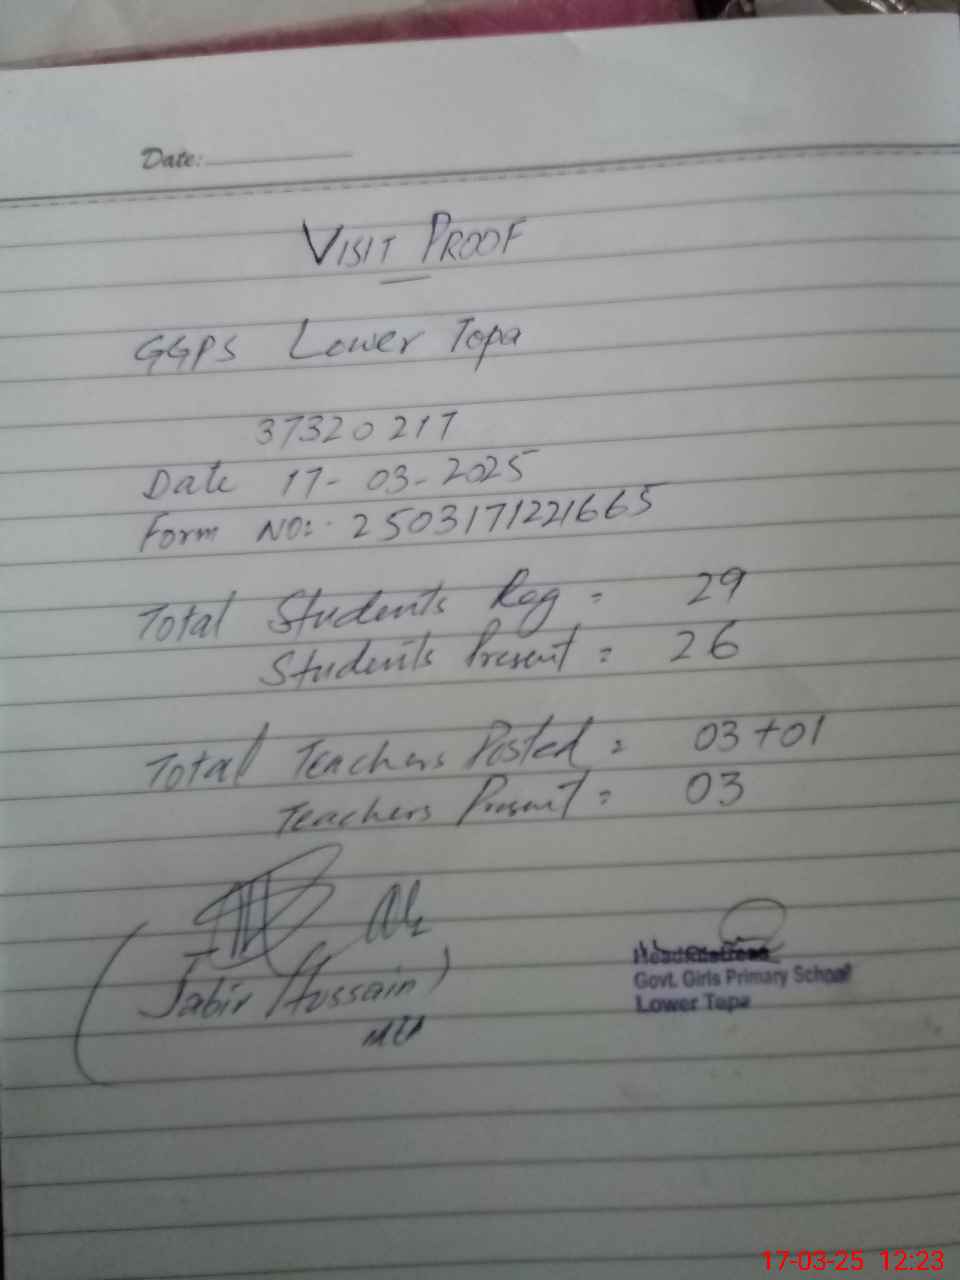 Date:
VISIT PROOF
GGPS Lower Topa
37320217
Date 17-03-2025
Form NO: 2503171221665
Total Students Reg = 29
Students Present = 26
Total Teachers Posted = 03+01
Teachers Present = 03
(Jabir Hussain)
MEA
Headmistress
Govt. Girls Primary School
Lower Topa
17-03-25 12:23